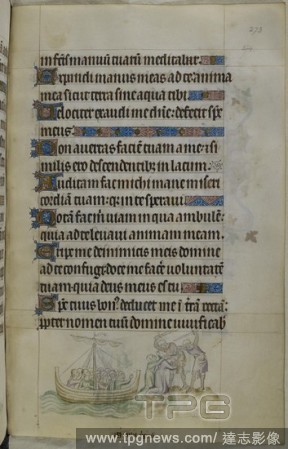 in fc̃is manuũ tuarũ meditabar.
Expandi manus meas ad te: anima
mea sicut terra sine aqua tibi.
Velociter exaudi me dñe: defecit sp̃c
meus.
Non auertas faciẽ tuam a me: & si
milis ero descendentib; in lacum.
Auditam fac michi mane miseri
cordiã tuam: q̃ in te speraui.
Notã fac m̃ uiam in qua ambulẽ:
quia ad te leuaui animam meam.
Eripe me de inimicis meis domine
ad te confugi: doce me facẽ uoluntatẽ
tuam quia deus meus es tu.
Sp̃c tuus bon; deducet me ĩ trã rectã:
p̃pter nomen tuũ domine uiuificab
TPG
www.tpgnews.com / 達志影像